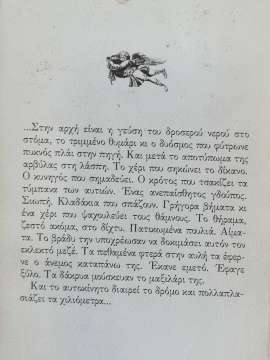 ...Στην αρχή είναι η γεύση του δροσερού νερού στο
στόμα, το τριμμένο θυμάρι κι ο δυόσμος που φύτρωνε
πυκνός πλάι στην πηγή. Και μετά το αποτύπωμα της
αρβύλας στη λάσπη. Το χέρι που σηκώνει το δίκανο.
Ο κυνηγός που σημαδεύει. Ο κρότος που τσακίζει τα
τύμπανα των αυτιών. Ένας ανεπαίσθητος γδούπος.
Σιωπή. Κλαδάκια που σπάζουν. Γρήγορα βήματα κι
ένα χέρι που ψαχουλεύει τους θάμνους. Το θήραμα,
ζεστό ακόμα, στο δίχτυ. Πατικωμένα πουλιά. Αίμα-
τα. Το βράδυ την υποχρέωσαν να δοκιμάσει αυτόν τον
εκλεκτό μεζέ. Τα πεθαμένα φτερά στην αυλή τα έφερ-
νε ο άνεμος καταπάνω της. Έκανε εμετό. Έφαγε
ξύλο. Τα δάκρυα μούσκευαν το μαξιλάρι της.
Και το αυτοκίνητο διαιρεί το δρόμο και πολλαπλα-
σιάζει τα χιλιόμετρα...